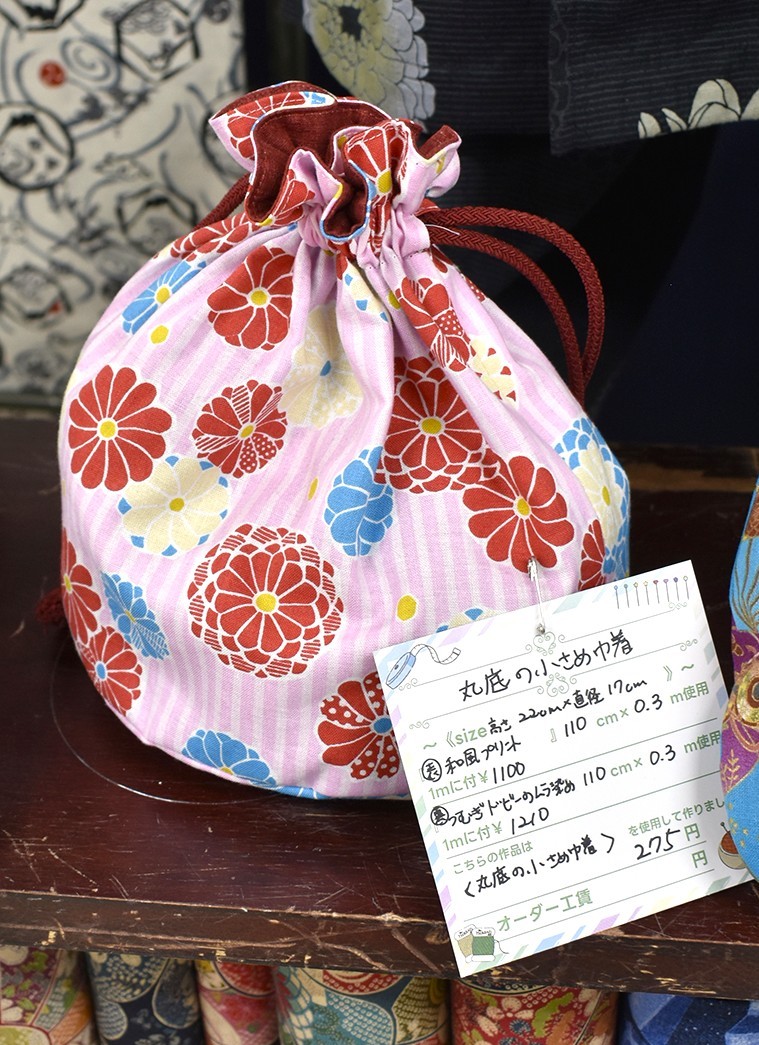 丸底の小さめ巾着
～《size 高さ 22cm×直径 17cm 》～
表 和風プリント 』 110 cm× 0.3 m使用
1mに付¥ 1100
裏 つむぎドビーのムラ染め 110 cm× 0.3 m使用
1mに付¥ 1210
こちらの作品は
〈丸底の小さめ巾着〉を使用して作りまし
275円
オーダー工賃 円